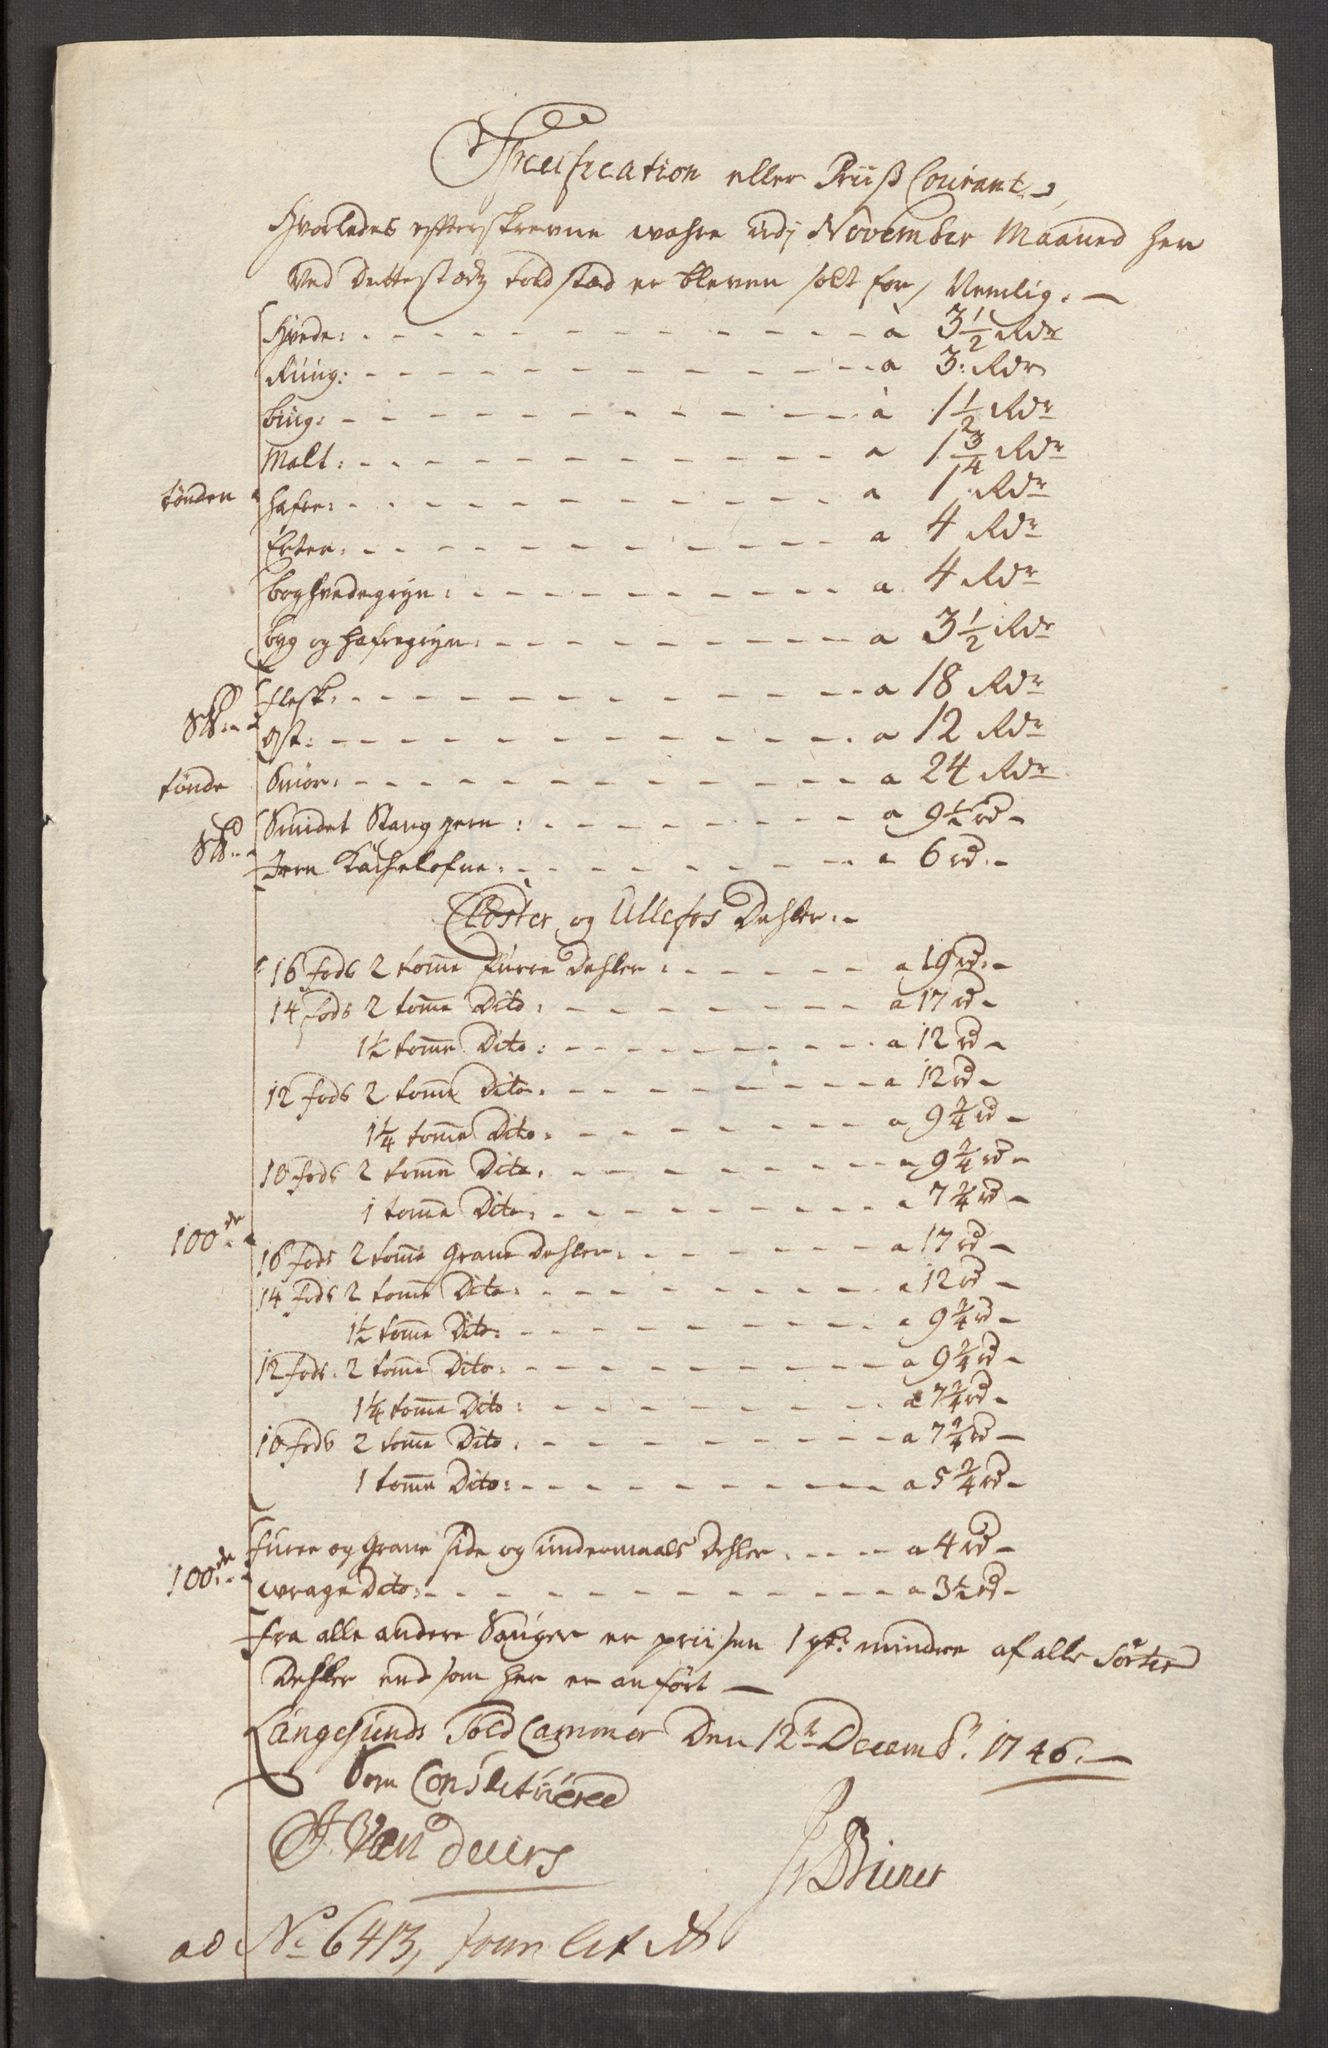 Specification eller Priiß Courant,
Hvorledes efterskrevne wahre udj November Maaned her
Ved Dette stædz toldstæd er bleven solt for, Nemlig. —
Hvede: a 3 1/2 Rdr
Rúúg: a 3: Rdr
búg: a 1 1/2 Rdr
Malt: a 1 3/4 Rdr
tønden hafre: a 1 Rdr
Erter: a 4 Rdr
boghvedegrÿn: a 4 Rdr
byg og hafregrÿn: a 3 1/2 Rdr
flesk: a 18 Rdr
S℔: ost: a 12 Rdr
tønde Smør: a 24 Rdr
Smidet Stang jern: a 9 1/2 rd
S℔: Jern Kachelofne: a 6 rd
Closter og Ullefos Dehler:
16 fods 2 tomme fúrre Dehler: a 19 rd
14 fods 2 tomme Dito: a 17 rd
1 1/2 tomme Dito: a 12 rd
12 fods 2 tomme Dito: a 12 rd
1 1/4 tomme Dito: a 9 2/4 rd
10 fods 2 tomme Dito: a 9 2/4 rd
1 tomme Dito: a 7 2/4 rd
100de 16 fods 2 tomme Grane Dehler: a 17 rd
14 fods 2 tomme Dito: a 12 rd
1 1/2 tomme Dito: a 9 2/4 rd
12 fods 2 tomme Dito: a 9 2/4 rd
1 1/4 tomme Dito: a 7 2/4 rd
10 fods 2 tomme Dito: a 7 2/4 rd
1 tomme Dito: a 5 2/4 rd
fúrre og Grane side og undermaals Dehler: a 4 rd
100de wrage Dito: a 3 1/2 rd
fra alle andre Sauger er priisen 1 mindre af alle Sorter
Dehler end som her er anført —
Langesunds Told Cammer Den 12te Decembr. 1746.
Som Constitúered
A. Van Deurs
ad No 6413,